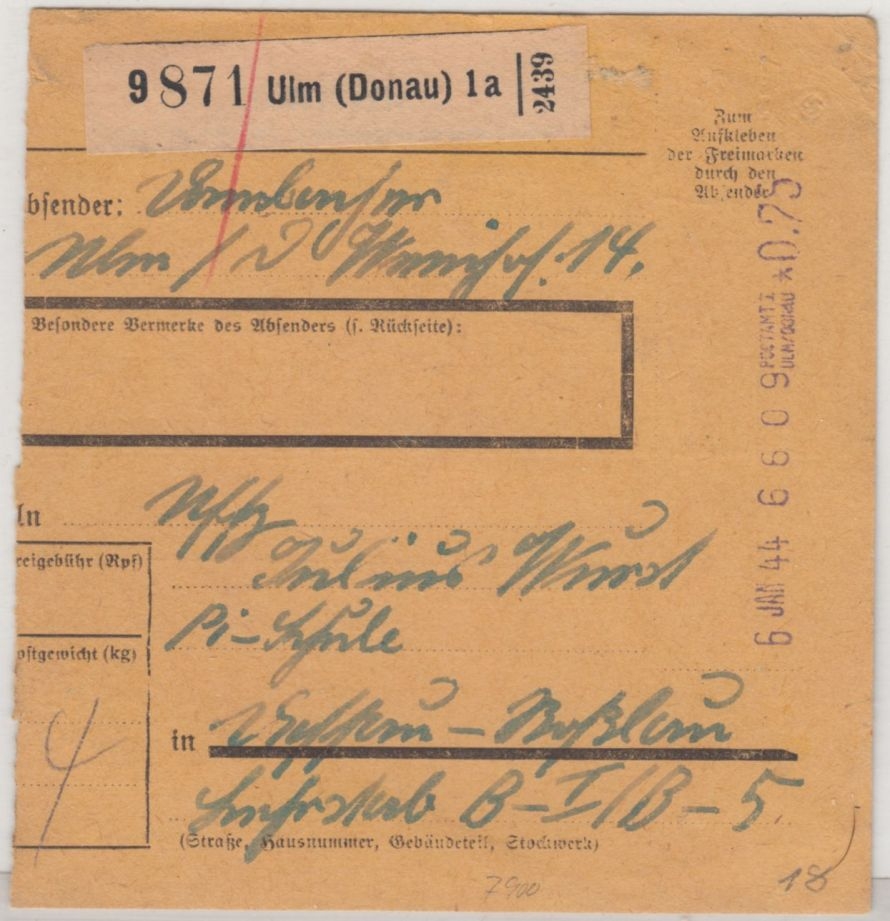 9 871 Ulm (Donau) 1a 2439
Zum
Aufkleben
der Freimarken
durch den
Absender
bsender:
Ulm / D 14.
Besondere Vermerke des Absenders (s. Rückseite):
POSTAMT 1
ULM/DONAU
6 JAN 44 6609 *0.75
An Uffz
Julius Wurst
Pi-Schule
reigebühr (Rpf)
ostgewicht (kg)
4
in Dessau - Roßlau
Lehrstab B-I/B-5
(Straße, Hausnummer, Gebäudeteil, Stockwerk)
7900
18